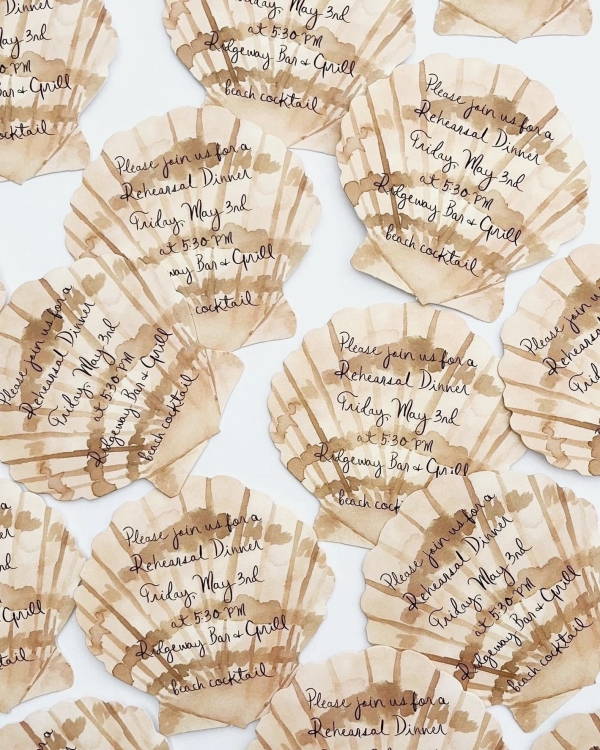 Dinner
May 3rd
PM
Bar & Grill
cocktail
May 3rd
at 5:30 PM
Ridgeway Bar & Grill
beach cocktail
Please join us for a
Rehearsal Dinner
Friday, May 3rd
at 5:30 PM
Ridgeway Bar & Grill
beach cocktail
Please join us for a
Rehearsal Dinner
Friday, May 3rd
at 5:30 PM
way Bar & Grill
cocktail
Please join us for a
Rehearsal Dinner
Friday, May 3rd
at 5:30 PM
Ridgeway Bar & Grill
beach cocktail
Please join us for a
Rehearsal Dinner
Friday, May 3rd
at 5:30 PM
Ridgeway Bar & Grill
beach cock
Please join us
Please join us for a
Rehearsal Dinner
Friday, May 3rd
at 5:30 PM
Ridgeway Bar & Grill
beach cocktail
Please join us for a
Rehearsal Dinner
Friday, May 3rd
at 5:30 PM
Ridgeway Bar & Grill
beach cocktail
Grill
Please join us for a
Rehearsal Dinner